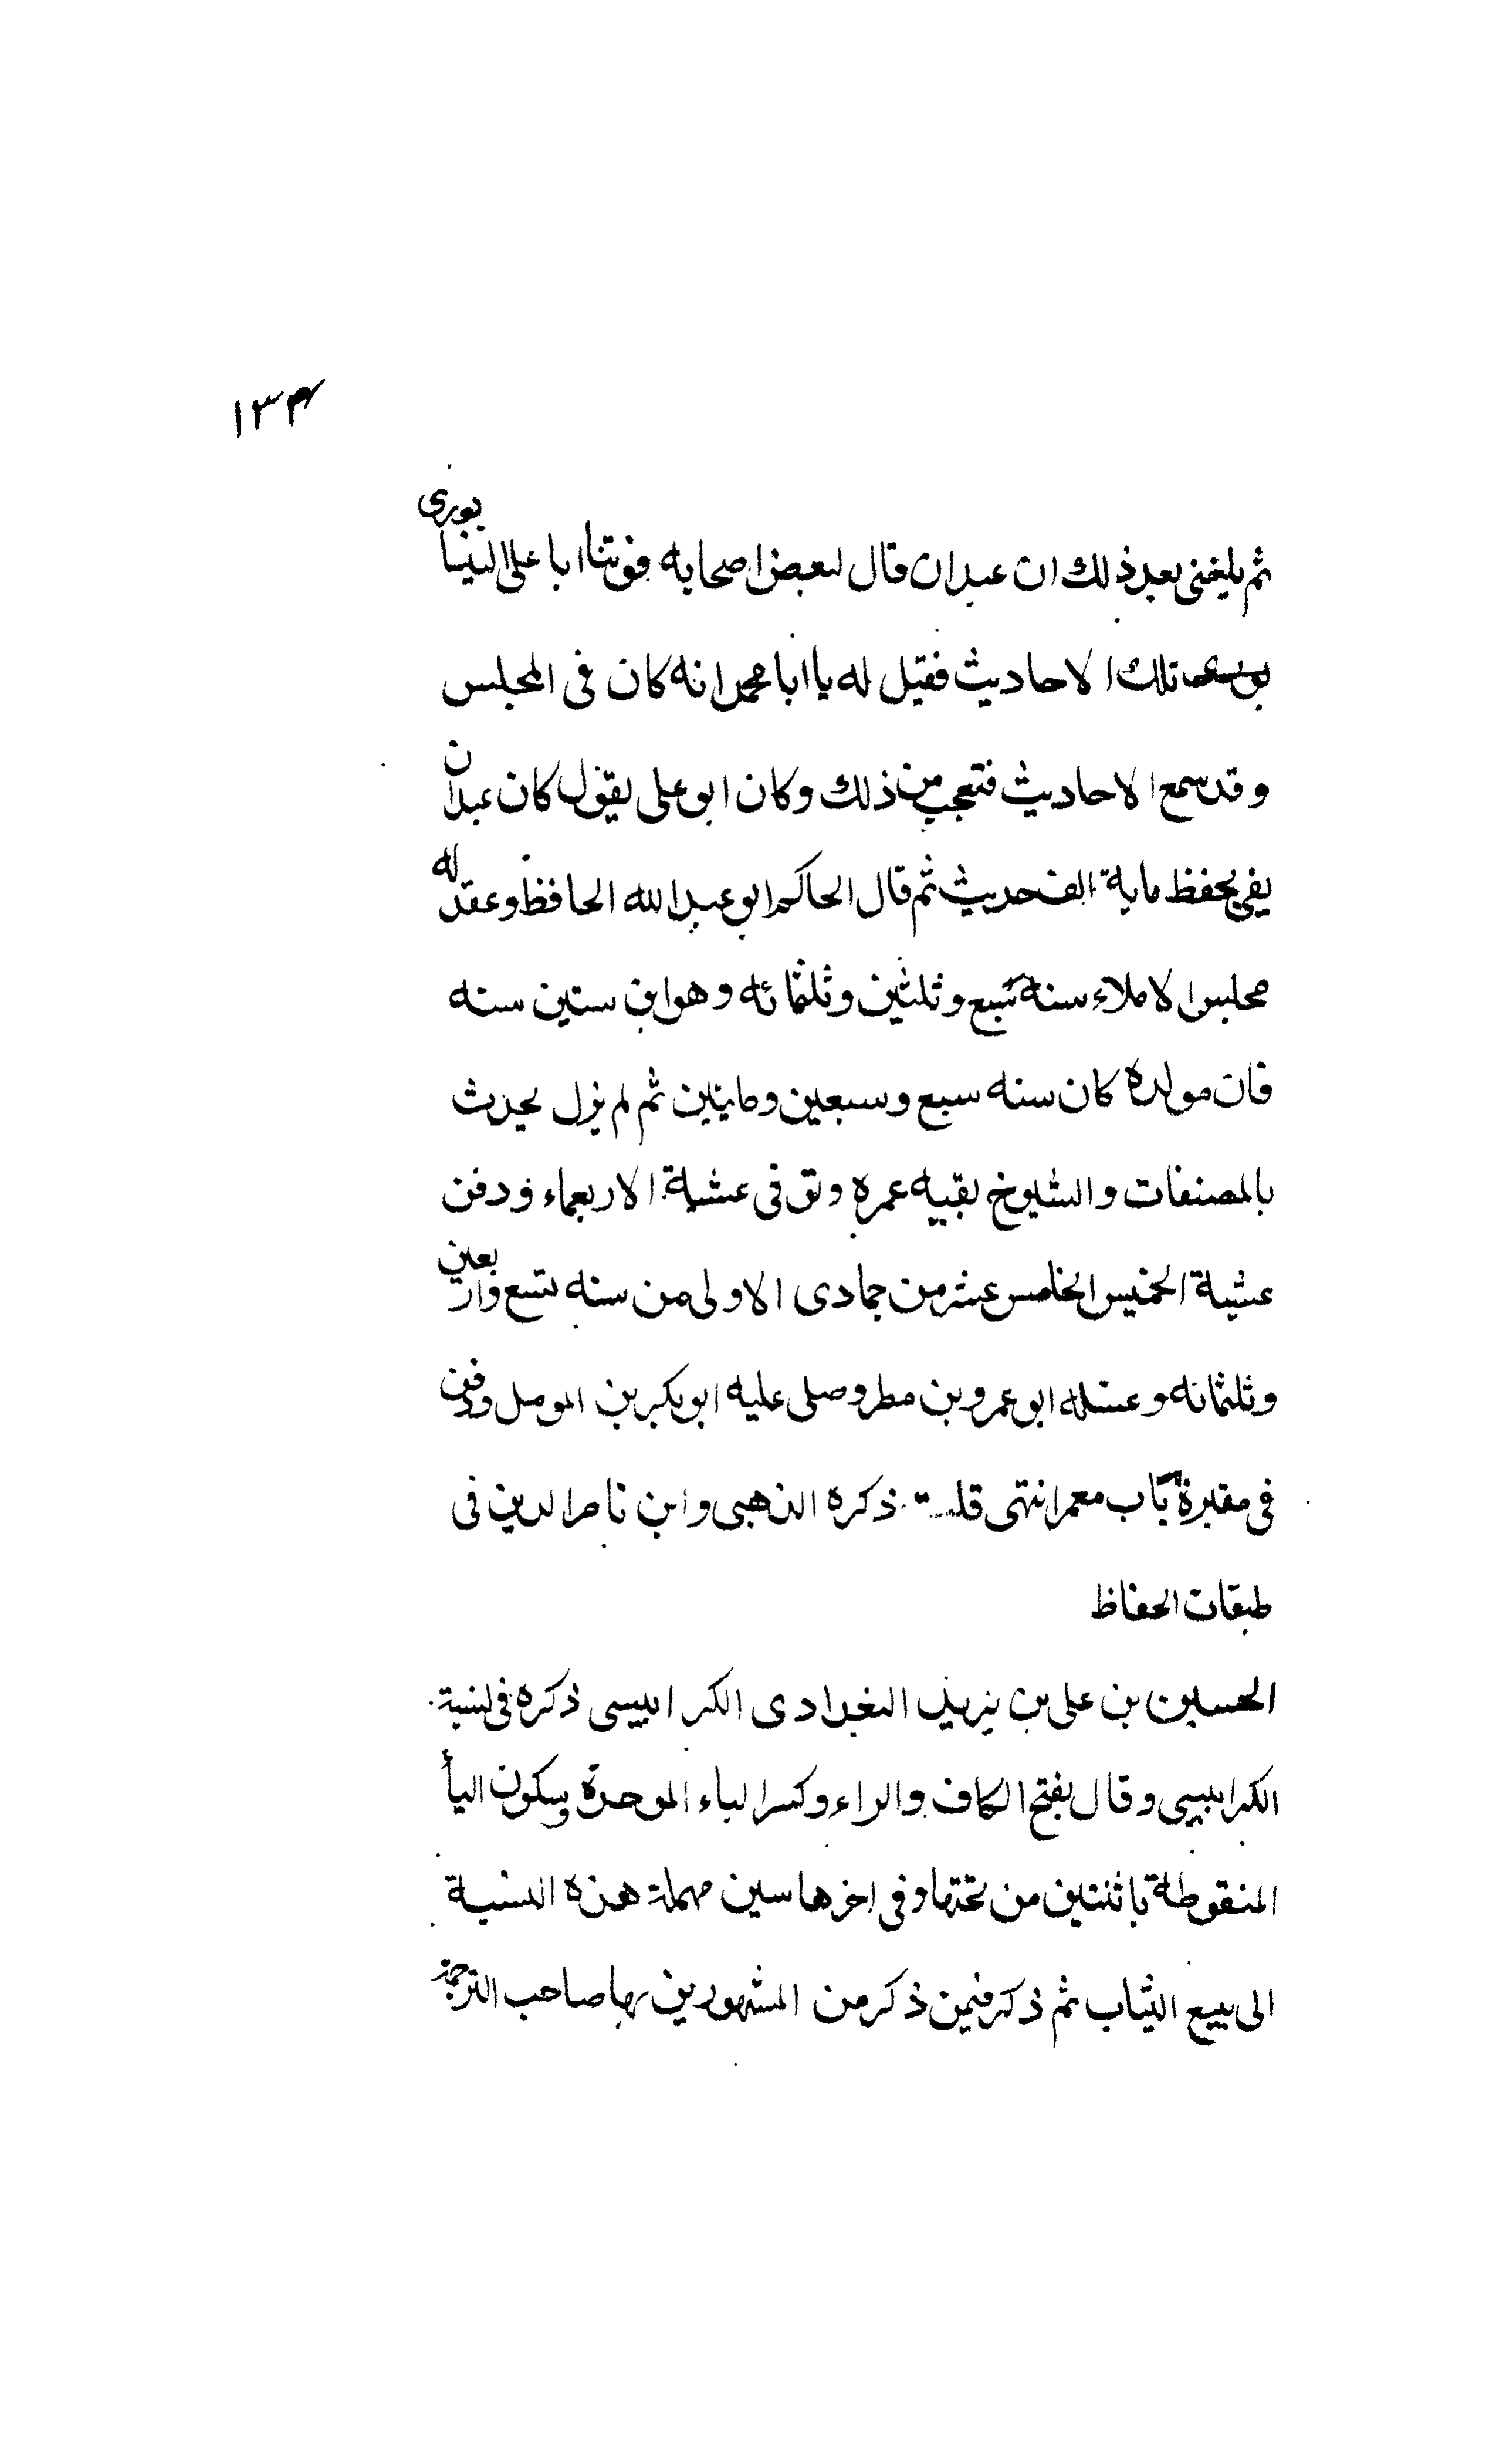 ١٣٤
ثم بلغنى بعد ذلك ان عبدان قال لبعض اصحابه فوتنا ابا على النيسابورى
تلك الاحاديث فقيل له يا ابا محمد انه كان فى المجلس
وقد سمع الاحاديث فتعجب من ذلك وكان ابو على يقول كان عبدان
يفى بحفظ ماية الف حديث ثم قال الحاكم ابو عبد الله الحافظ وعقد له
مجلس الاملاء سنه سبع وثلثين وثلثمائه وهو ابن ستين سنه
فان مولده كان سنه سبع وسبعين ومايتين ثم لم يزل يحدث
بالمصنفات والشيوخ بقيه عمره وتوفى عشية الاربعاء ودفن
عشية الخميس الخامس عشر من جمادى الاولى من سنه تسع واربعين
وثلثمائه وغسله ابو عمرو بن مطر وصلى عليه ابو بكر بن المومل ودفن
فى مقبرة باب معمر انتهى قلت ذكره الذهبى وابن ناصر الدين فى
طبقات الحفاظ
الحسين بن على بن يزيد البغدادى الكرابيسى ذكره فى نسبة
الكرابيسى وقال بفتح الكاف والراء وكسر الباء الموحدة وسكون اليأ
المنقوطة باثنتين من تحتها وفى اخرها سين مهملة هذه النسبة
الى بيع الثياب ثم ذكر فيمن ذكر من المشهورين بها صاحب الترجمة